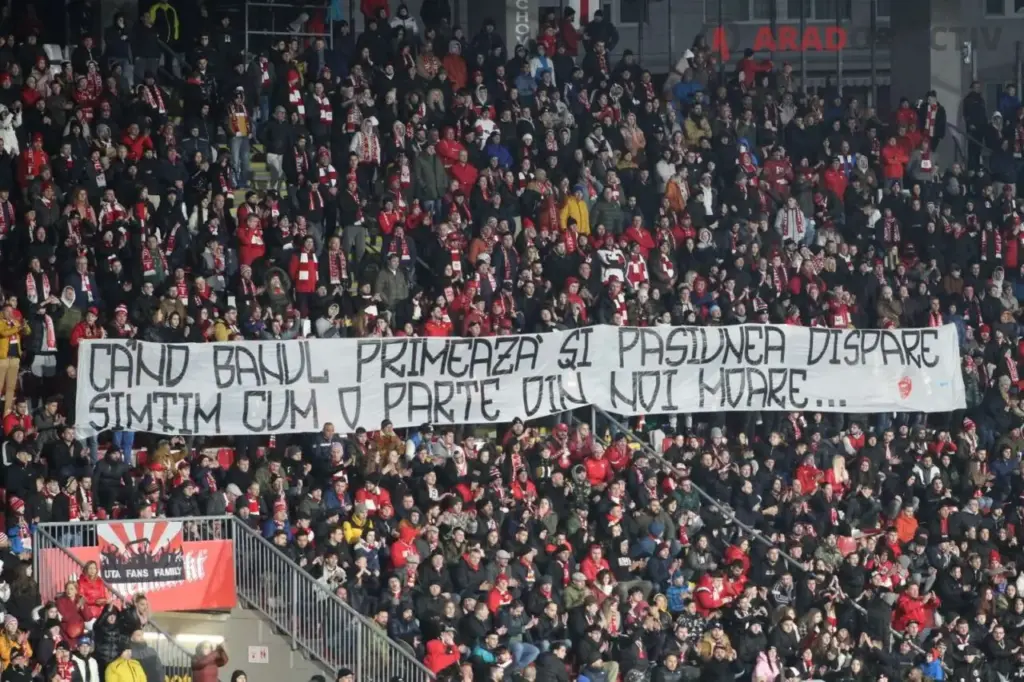 ARAD OBIECTIV
CÂND BANUL PRIMEAZĂ ȘI PASIUNEA DISPARE
SIMȚIM CUM O PARTE DIN NOI MOARE...
UTA FANS FAMILY